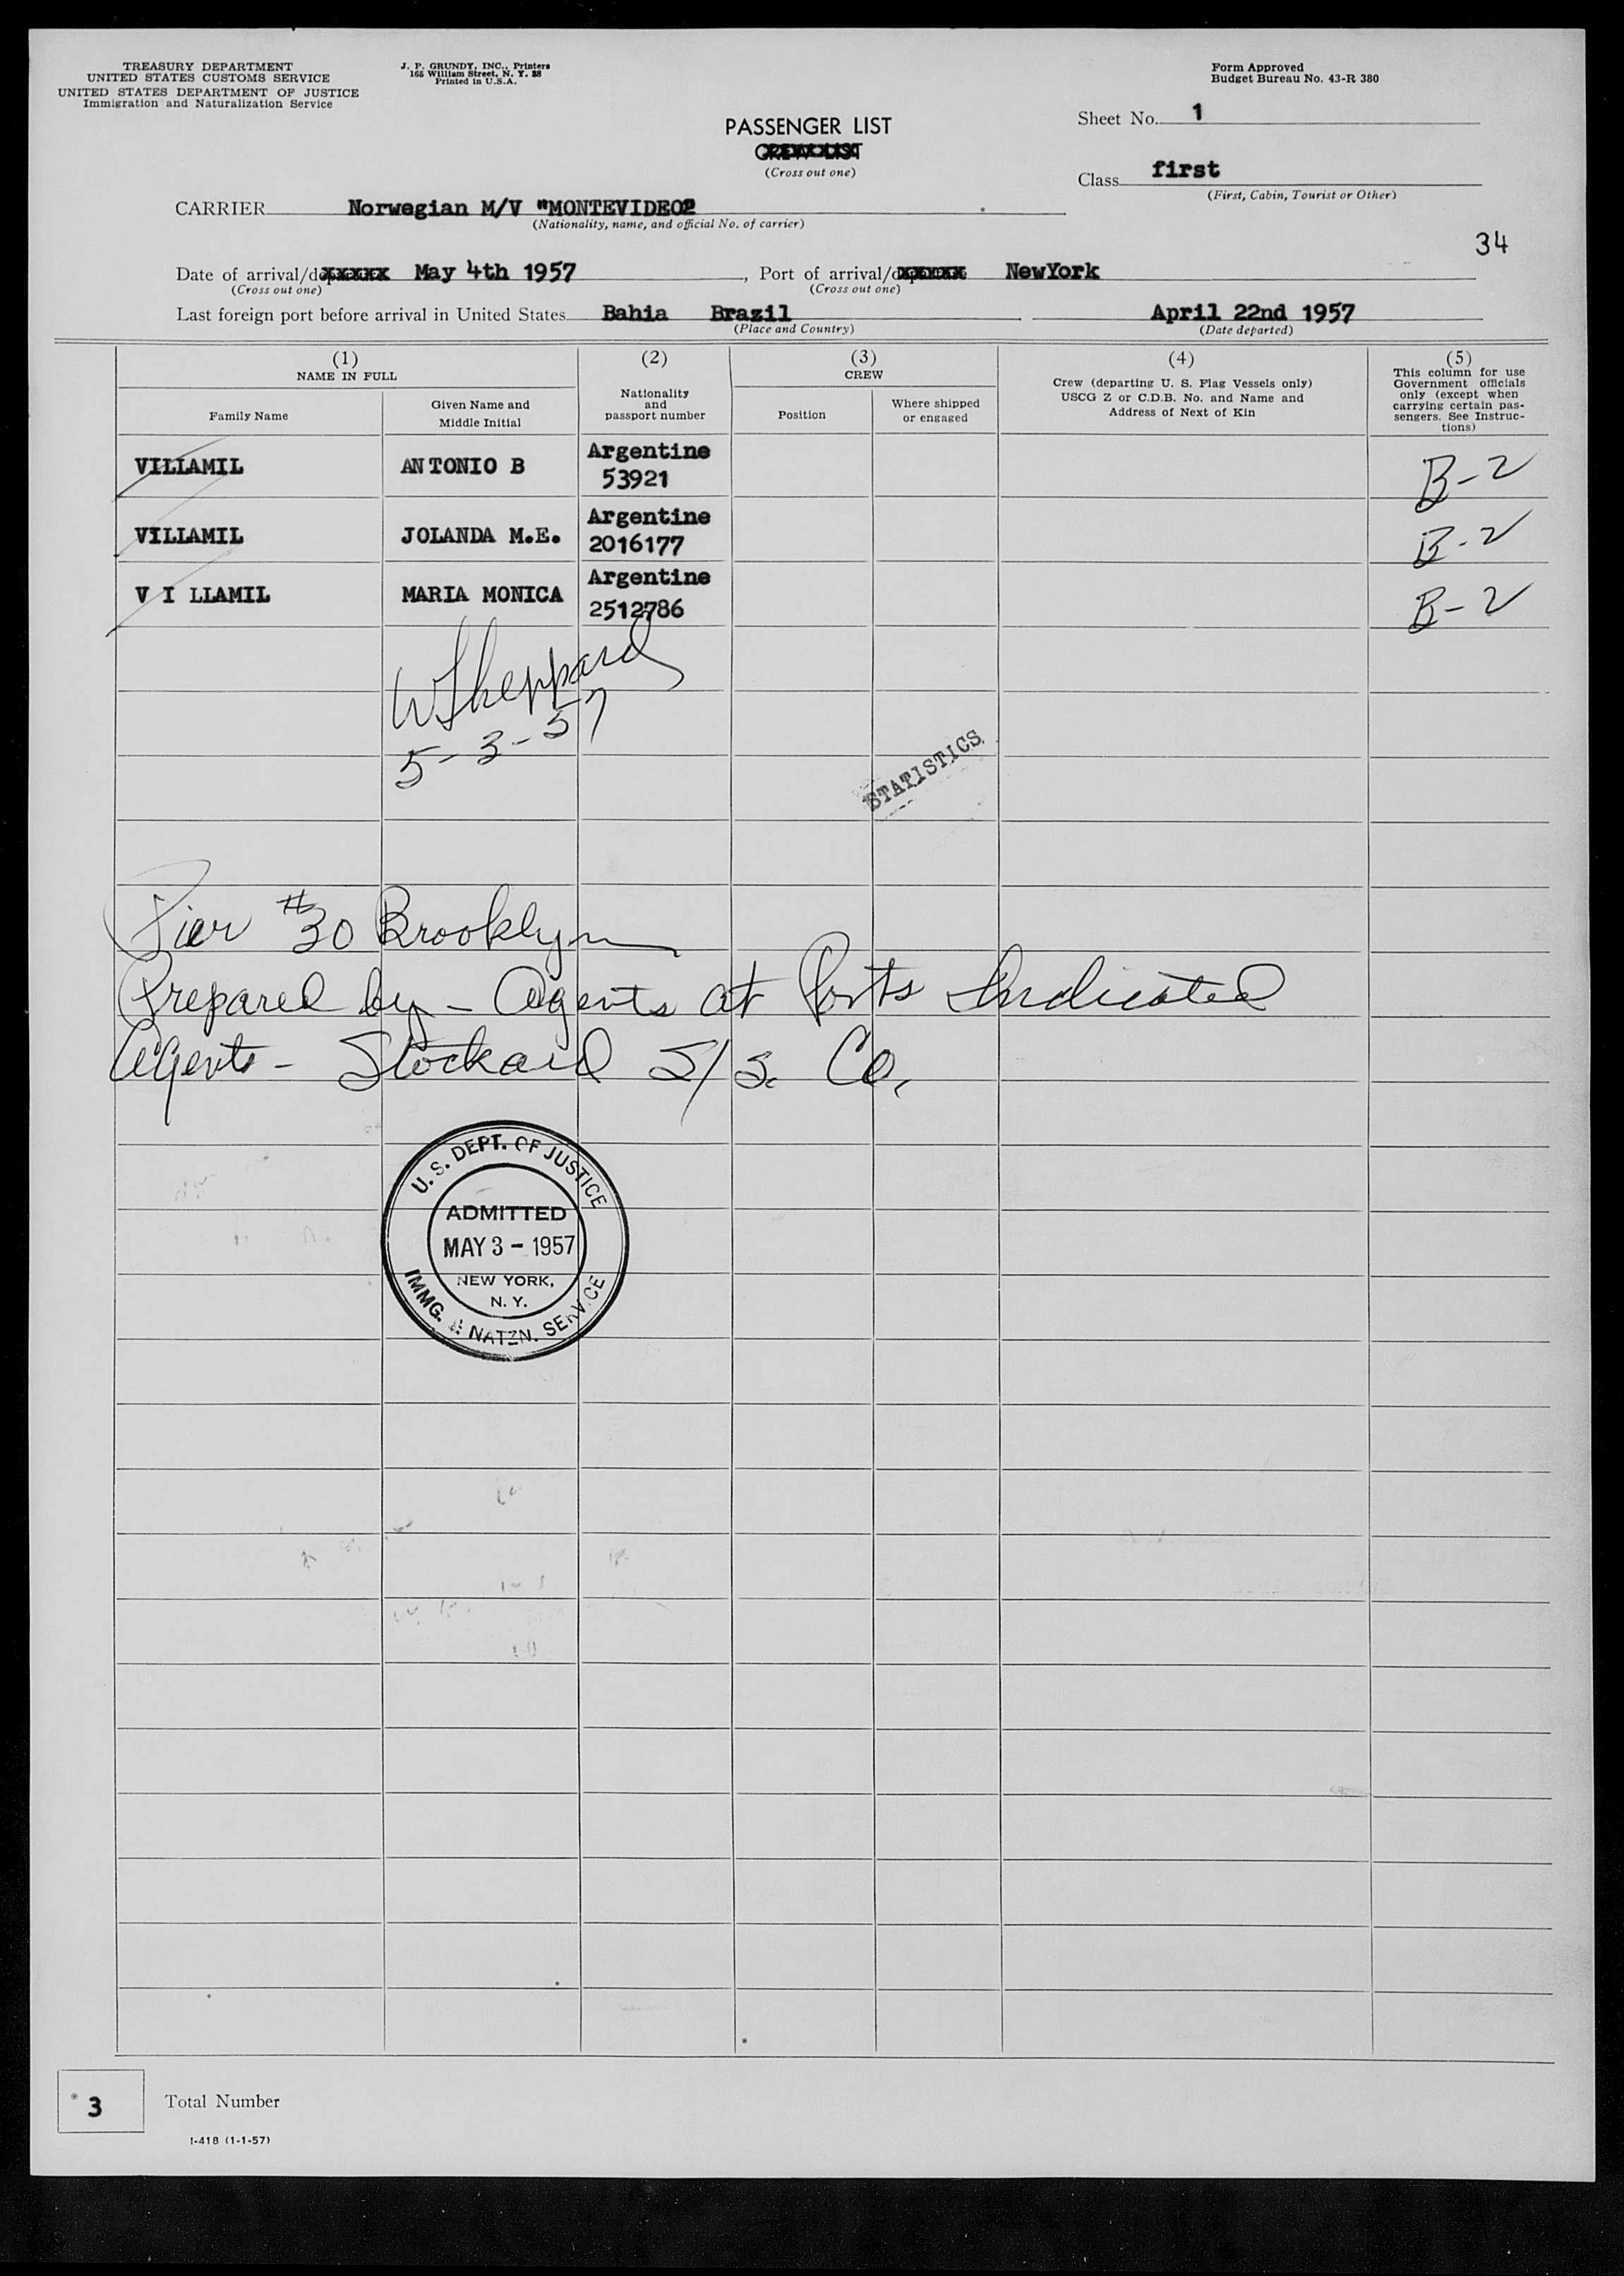 TREASURY DEPARTMENT
UNITED STATES CUSTOMS SERVICE
UNITED STATES DEPARTMENT OF JUSTICE
Immigration and Naturalization Service
J. P. GRUNDY, INC., Printers
165 William Street, N. Y. 38
Printed in U.S.A.
Form Approved
Budget Bureau No. 43-R 380
PASSENGER LIST
CREW LIST
(Cross out one)
Sheet No. 1
Class first
(First, Cabin, Tourist or Other)
CARRIER Norwegian M/V "MONTEVIDEO2
(Nationality, name, and official No. of carrier)
34
Date of arrival/dexxxxx May 4th 1957, Port of arrival/dxxxxxx NewYork
(Cross out one) (Cross out one)
Last foreign port before arrival in United States Bahia Brazil April 22nd 1957
(Place and Country) (Date departed)
(1)
NAME IN FULL
Family Name
Given Name and
Middle Initial
(2)
Nationality
and
passport number
(3)
CREW
Position
Where shipped
or engaged
(4)
Crew (departing U. S. Flag Vessels only)
USCG Z or C.D.B. No. and Name and
Address of Next of Kin
(5)
This column for use
Government officials
only (except when
carrying certain pas-
sengers. See Instruc-
tions)
VILLAMIL ANTONIO B Argentine 53921 B-2
VILLAMIL JOLANDA M.E. Argentine 2016177 B-2
V I LLAMIL MARIA MONICA Argentine 2512786 B-2
W Sheppard
5-3-57
STATISTICS
Pier #30 Brooklyn
Prepared by - Agents at Ports Indicated
Agents - Stockard S/S. Co.
U. S. DEPT. OF JUSTICE
ADMITTED
MAY 3 - 1957
NEW YORK,
N. Y.
IMMG. & NATZN. SERVICE
3 Total Number
I-418 (1-1-57)